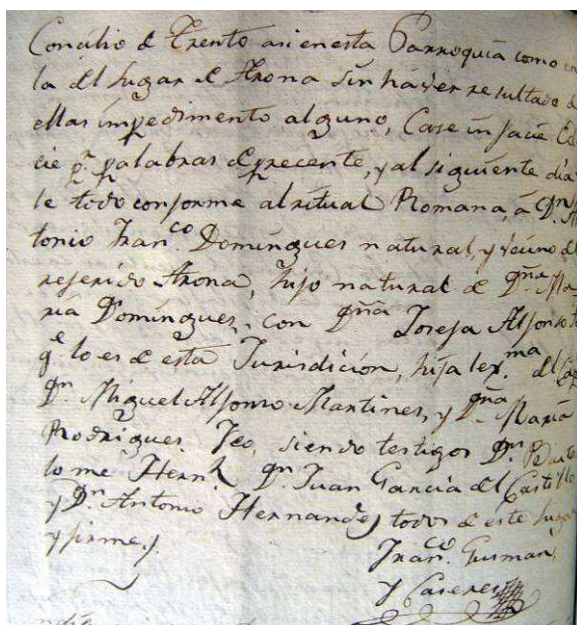 Concilio de Trento asi en esta Parroquia como en
la del lugar de Arona sin haver resultado de
ellas impedimento alguno, Case in facie Ecle
cie pr. palabras de precente, y al siguiente dia
le todo conforme al ritual Romana, á Dn. An
tonio Franco. Domíngues natural, y vecino del
referido Arona, hijo natural de Dña Ma
ría Domíngues, con Dña Josefa Alfonso
qe lo es de esta Jurisdición, hija lexma. del Cap
Dn. Miguel Alfonso Martines, y Dña María
Rodrigues Feo, siendo testigos Dn. Barto
lomé Hernz. Dn. Juan García del Castillo
y Dn. Antonio Hernandes todos de este lugar
y firme.
Franco. Gusman
y Caseres